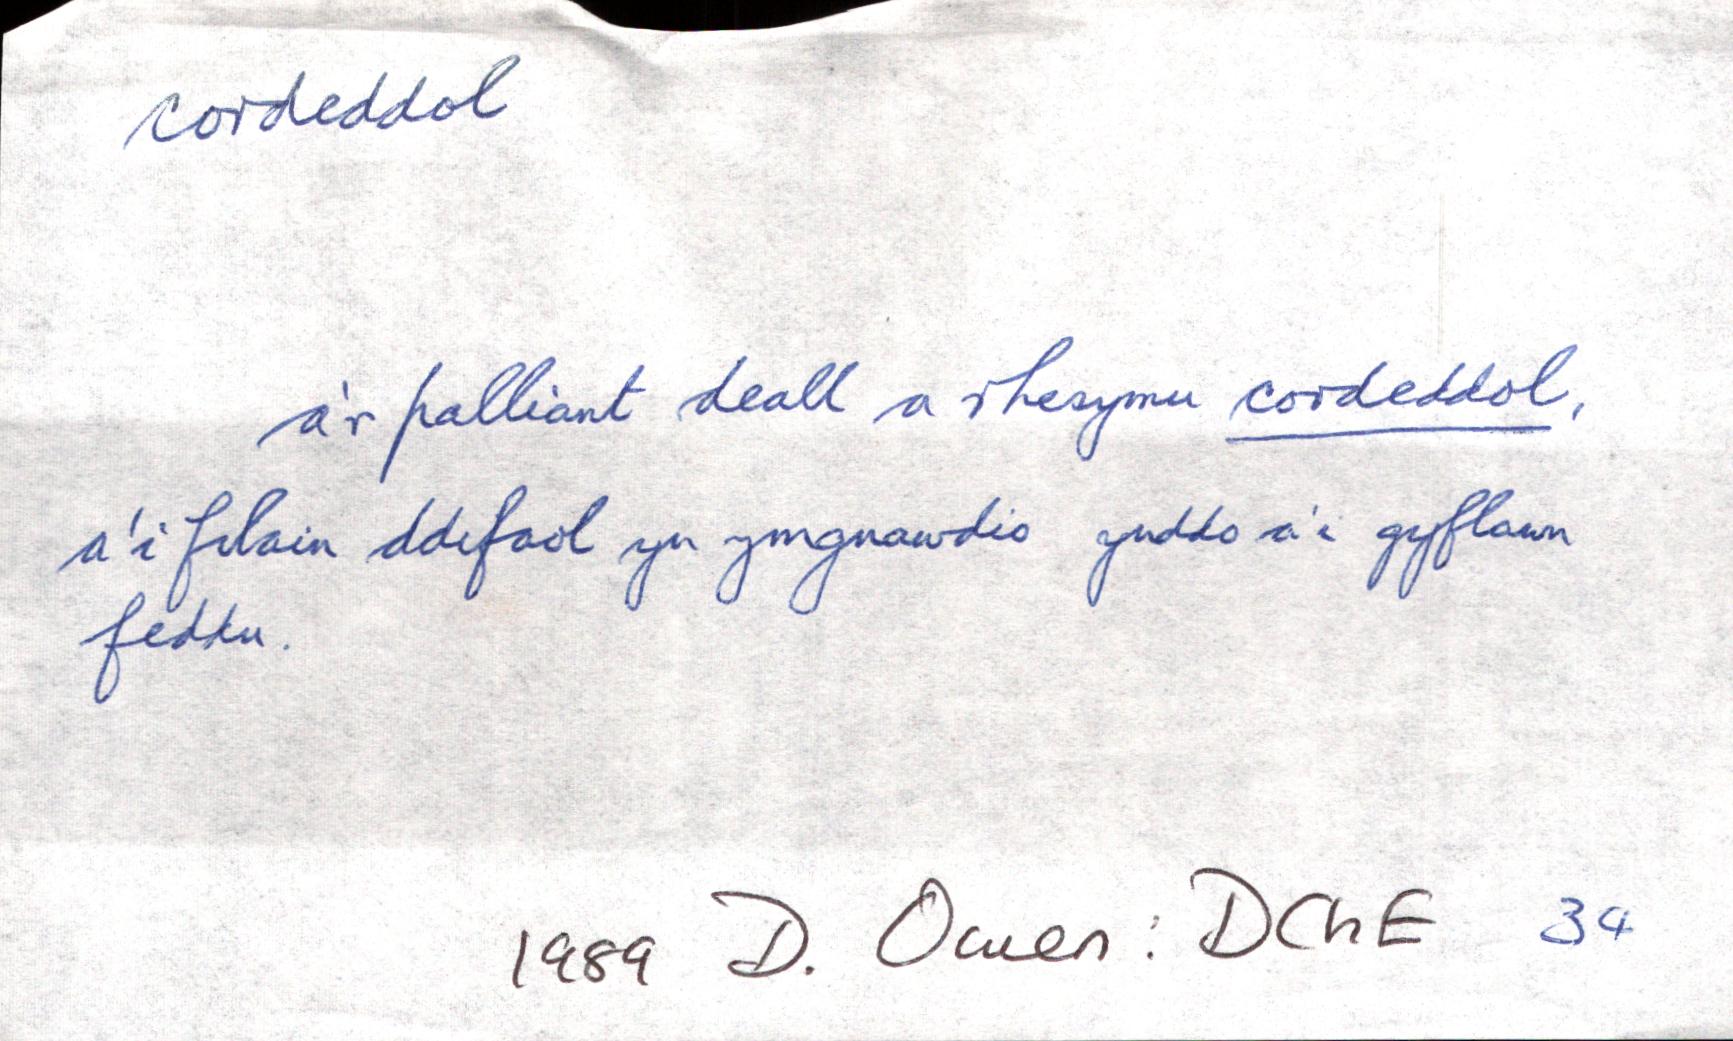 cordeddol
a'r palliant deall a rhesymu cordeddol,
a'i filain ddefaol yn ymgnawdio ynddo a'i gyflawn
feddu.
1989 D. Owen: DChE 34